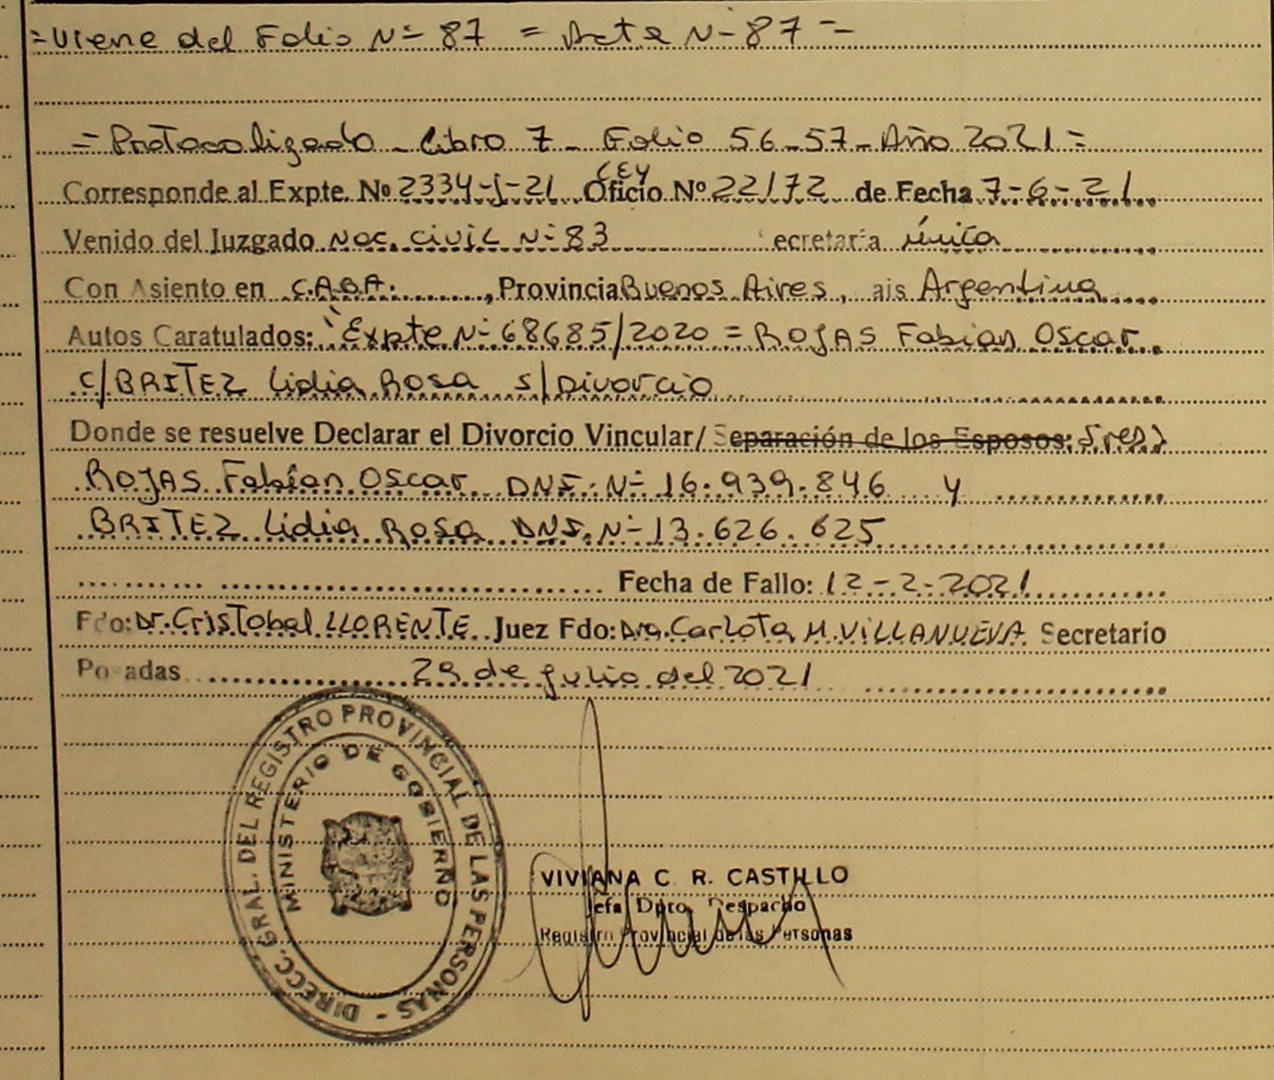 =Viene del Folio Nº 87 = Acta Nº 87 =
= Protocolizado - Libro 7 - Folio 56-57 - Año 2021 =
Corresponde al Expte. Nº 2334-J-21 Oficio LEY Nº 22172 de Fecha 7-6-21
Venido del Juzgado Nac. Civil Nº 83 ecretaría única
Con Asiento en C.A.B.A. , Provincia Buenos Aires, ais Argentina
Autos Caratulados: "Expte Nº 68685/2020 = ROJAS Fabian Oscar
c/BRITEZ Lidia Rosa s/Divorcio
Donde se resuelve Declarar el Divorcio Vincular/ Separación de los Esposos: Sres
ROJAS Fabián Oscar DNI. Nº 16.939.846 y
BRITEZ Lidia Rosa DNI. Nº 13.626.625
Fecha de Fallo: 12-2-2021
Fdo: Dr. Cristobal LLORENTE Juez Fdo: Dra. Carlota M. VILLANUEVA Secretario
Posadas 29 de julio del 2021
DIRECC. GRAL. DEL REGISTRO PROVINCIAL DE LAS PERSONAS -
MINISTERIO DE GOBIERNO
VIVIANA C. R. CASTILLO
Jefa Dpto. Despacho
Registro Provincial de las Personas